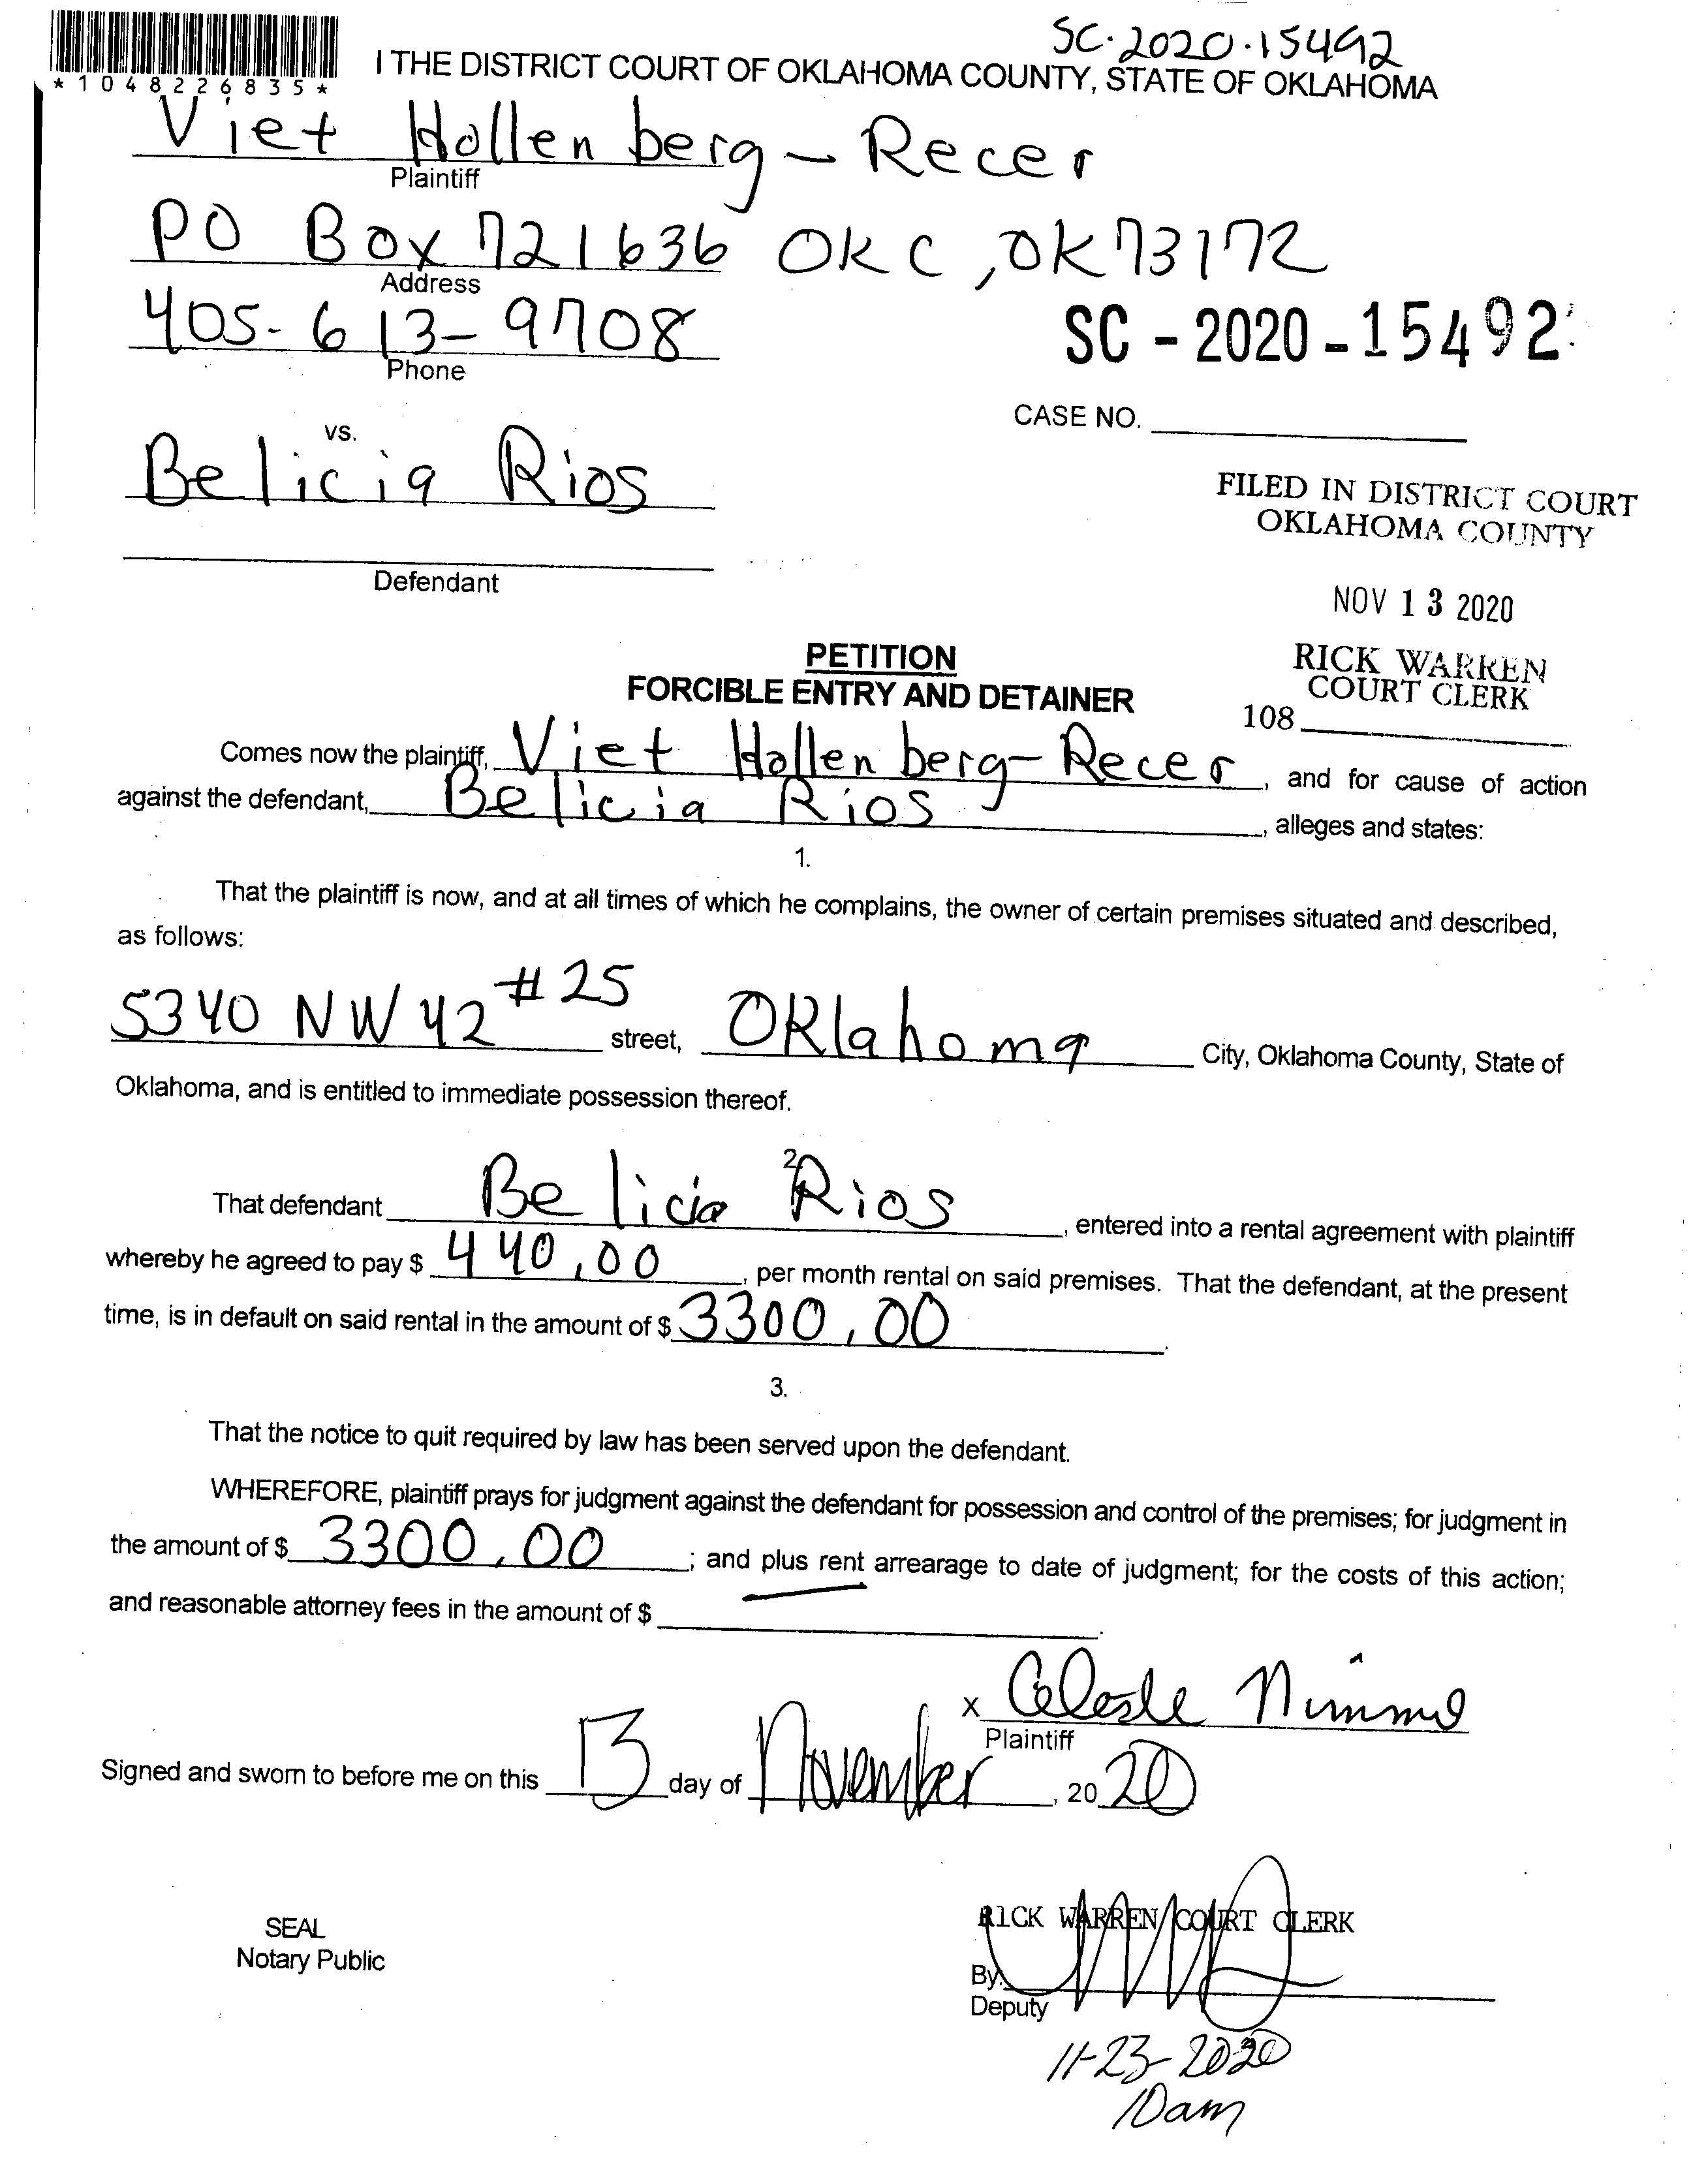 SC-2020-15492
*1048226835*
I THE DISTRICT COURT OF OKLAHOMA COUNTY, STATE OF OKLAHOMA
Viet Hollenberg-Recer
Plaintiff
PO Box 721636 OKC, OK 73172
Address
405-613-9708
Phone
SC-2020-15492
CASE NO.
vs.
Belicia Rios
Defendant
FILED IN DISTRICT COURT
OKLAHOMA COUNTY
NOV 13 2020
RICK WARREN
COURT CLERK
108
PETITION
FORCIBLE ENTRY AND DETAINER
Comes now the plaintiff, Viet Hollenberg-Recer, and for cause of action
against the defendant, Belicia Rios, alleges and states:
1.
That the plaintiff is now, and at all times of which he complains, the owner of certain premises situated and described,
as follows:
5340 NW 42 #25 street, Oklahoma City, Oklahoma County, State of
Oklahoma, and is entitled to immediate possession thereof.
2.
That defendant Belicia Rios, entered into a rental agreement with plaintiff
whereby he agreed to pay $ 440.00, per month rental on said premises. That the defendant, at the present
time, is in default on said rental in the amount of $ 3300.00.
3.
That the notice to quit required by law has been served upon the defendant.
WHEREFORE, plaintiff prays for judgment against the defendant for possession and control of the premises; for judgment in
the amount of $ 3300.00; and plus rent arrearage to date of judgment; for the costs of this action;
and reasonable attorney fees in the amount of $
x Celeste Nimmo
Plaintiff
Signed and sworn to before me on this 13 day of November, 2020
SEAL
Notary Public
RICK WARREN COURT CLERK
By:
Deputy
11-23-2020
10am